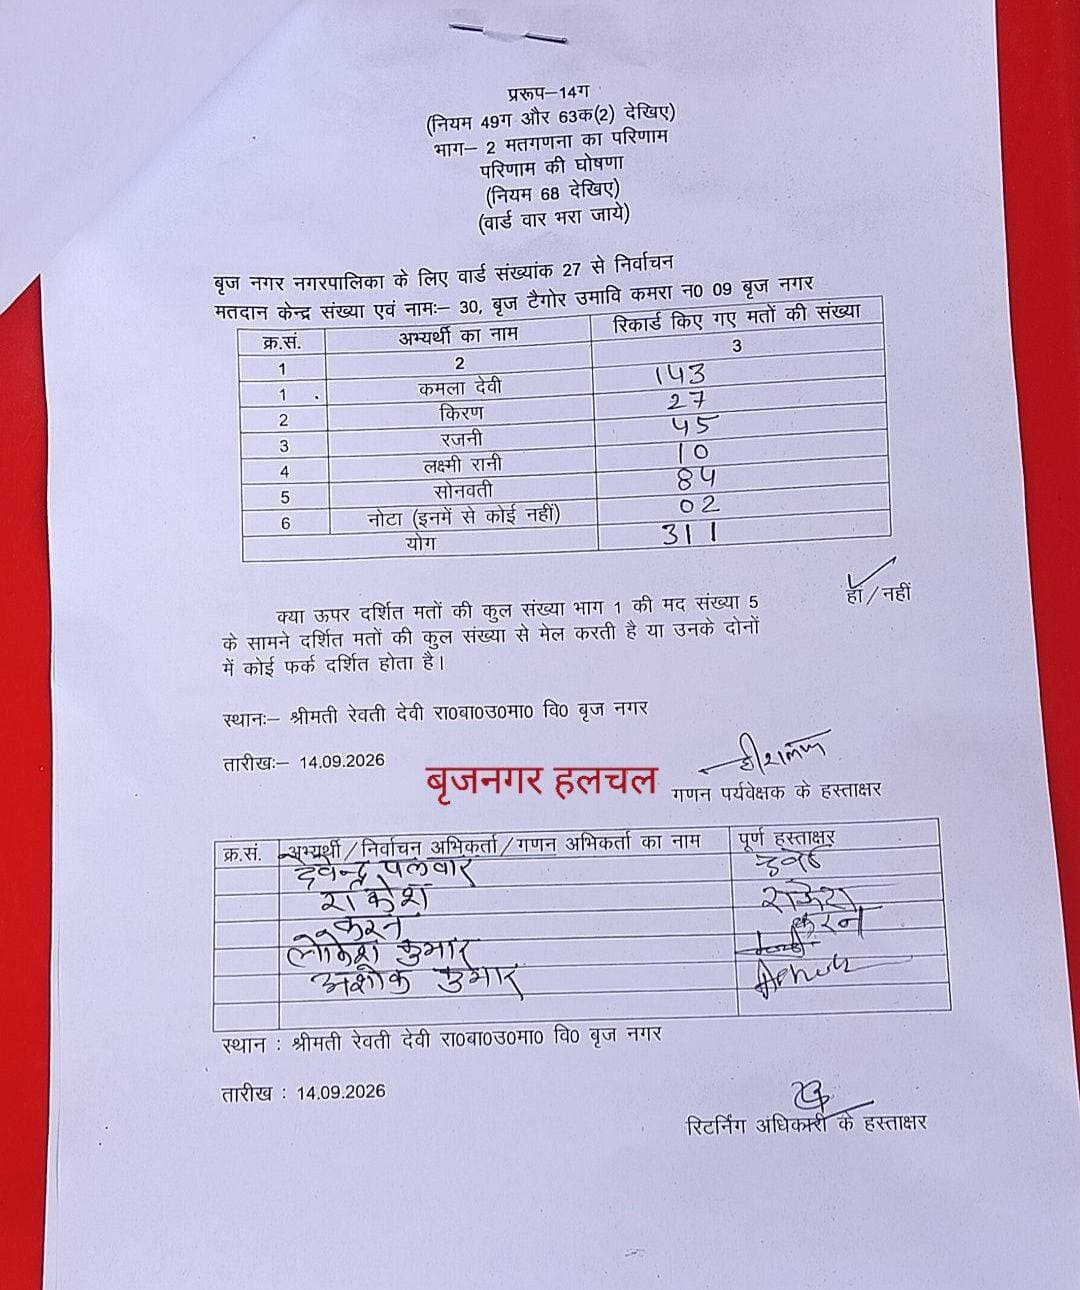 प्ररूप–14ग
(नियम 49ग और 63क(2) देखिए)
भाग– 2 मतगणना का परिणाम
परिणाम की घोषणा
(नियम 68 देखिए)
(वार्ड वार भरा जाये)
बृज नगर नगरपालिका के लिए वार्ड संख्यांक 27 से निर्वाचन
मतदान केन्द्र संख्या एवं नामः– 30, बृज टैगोर उमावि कमरा न0 09 बृज नगर
क्र.सं. अभ्यर्थी का नाम रिकार्ड किए गए मतों की संख्या
1 2 3
1 कमला देवी 143
2 किरण 27
3 रजनी 45
4 लक्ष्मी रानी 10
5 सोनवती 84
6 नोटा (इनमें से कोई नहीं) 02
योग 311
क्या ऊपर दर्शित मतों की कुल संख्या भाग 1 की मद संख्या 5 हॉ/नहीं
के सामने दर्शित मतों की कुल संख्या से मेल करती है या उनके दोनों
में कोई फर्क दर्शित होता है।
स्थानः– श्रीमती रेवती देवी रा0बा0उ0मा0 वि0 बृज नगर
तारीखः– 14.09.2026
बृजनगर हलचल
गणन पर्यवेक्षक के हस्ताक्षर
क्र.सं. अभ्यर्थी/निर्वाचन अभिकर्ता/गणन अभिकर्ता का नाम पूर्ण हस्ताक्षर
देवेन्द्र पलवार
राकेश राकेश
करन करन
लोकेश कुमार
अशोक कुमार Ashok
स्थान : श्रीमती रेवती देवी रा0बा0उ0मा0 वि0 बृज नगर
तारीख : 14.09.2026
रिटर्निंग अधिकारी के हस्ताक्षर